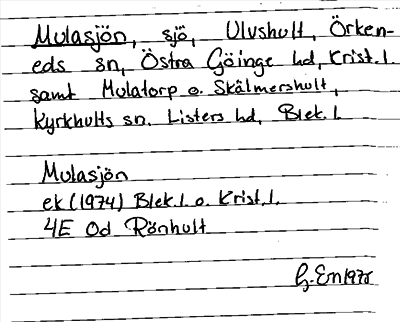 Mulasjön, sjö, Ulvshult, Örken-
eds sn, Östra Göinge hd, Krist. l.
samt Mulatorp o. Skälmershult,
Kyrkhults sn. Listers hd, Blek. l.
Mulasjön
ek (1974) Blek. l. o. Krist. l.
4E Od Rönhult
1975